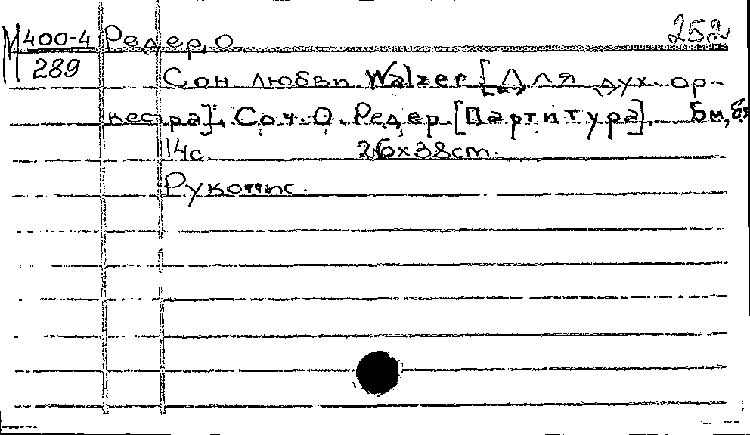 252
М 400-4 Редер, О.
289
Сон любви. Walzer [Для дух. ор-
кестра]. Соч. О. Редер [Партитура]. Бм, бг
14с. 26х38cm.
Рукопис.